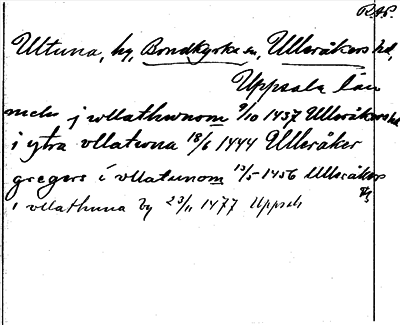 R.A.P.
Ultuna, by, Bondkyrka sn, Ulleråkers hd,
Uppsala län
niels j wllathwnom 9/10 1437 Ulleråkers hd
i ytra vllatuna 18/6 1444 Ulleråker
gregers i vllatunom 13/5 1456 Ulleråkers
i vllathuna by 23/11 1477 Uppsala